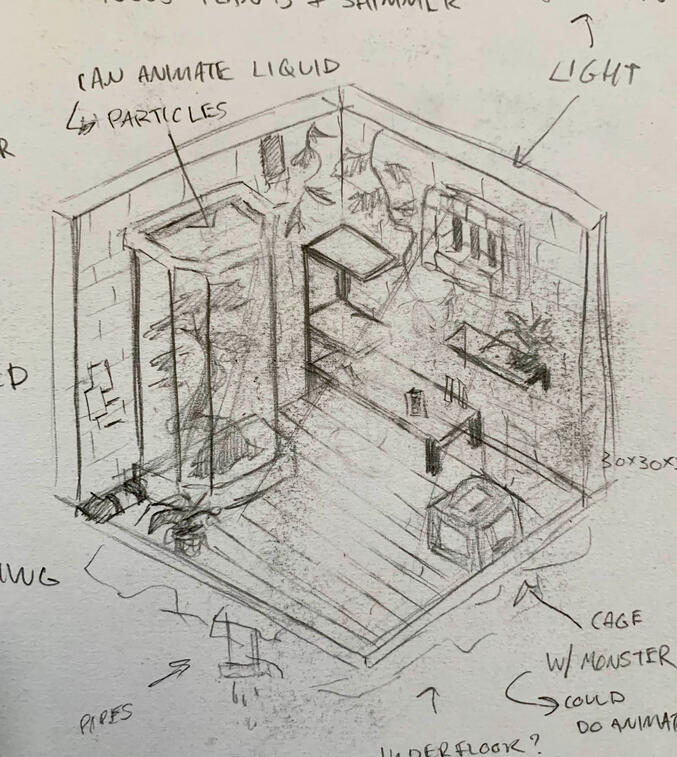 SHIMMER
CAN ANIMATE LIQUID
↳ PARTICLES
LIGHT
R
ED
30x30x
WG
CAGE
W/ MONSTER
↳ COULD
DO ANIMAT
PIPES
UNDERFLOOR?